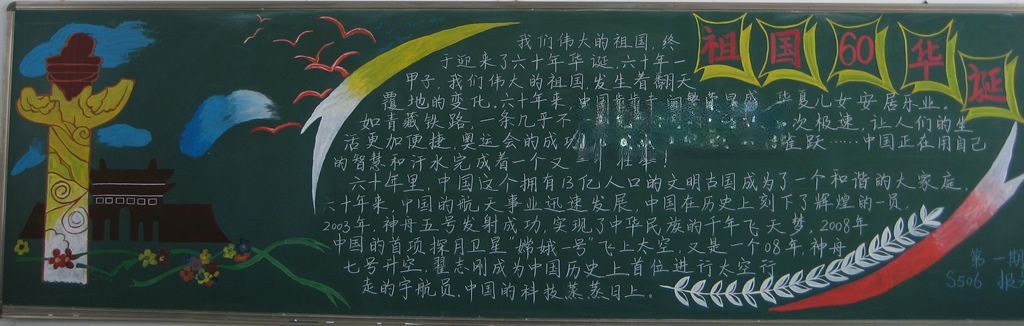 祖国60华诞
我们伟大的祖国,终
于迎来了六十年华诞,六十年一
甲子,我们伟大的祖国,发生着翻天
覆地的变化,六十年来,中国 华夏儿女安居乐业。
如青藏铁路,一条几乎不 次极速,让人们的生
活更加便捷,奥运会的成功 雀跃……中国正在用自己
的智慧和汗水完成着一个又
六十年里,中国这个拥有13亿人口的文明古国成为了一个和谐的大家庭,
六十年来,中国的航天事业迅速发展,中国在历史上刻下了辉煌的一页,
2003年,神舟五号发射成功,实现了中华民族的千年飞天梦,2008年
中国的首项探月卫星“嫦娥一号”飞上太空,又是一个08年,神舟
七号升空,翟志刚成为中国历史上首位进行太空行
走的宇航员,中国的科技蒸蒸日上。
第一期
S506 报